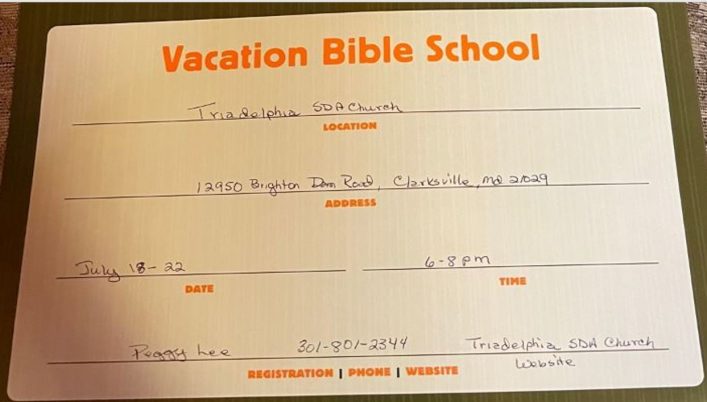 Vacation Bible School
Triadelphia SDA Church
LOCATION
12950 Brighton Dam Road, Clarksville, MD 21029
ADDRESS
July 18-22 6-8 pm
DATE TIME
Peggy Lee 301-801-2344 Triadelphia SDA Church
Website
REGISTRATION | PHONE | WEBSITE